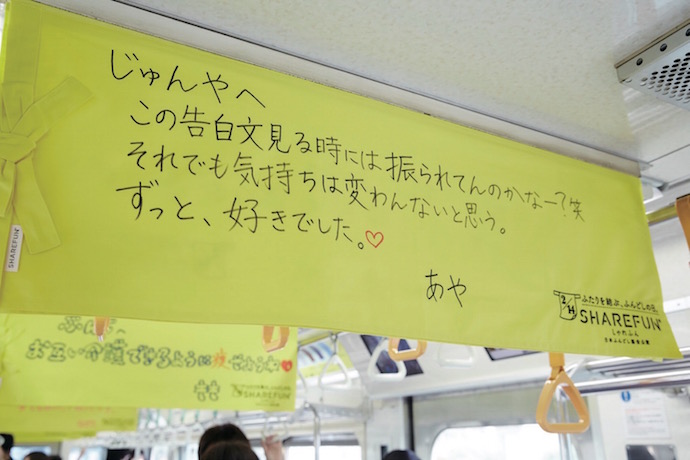 じゅんやへ
この告白文見る時には振られてんのかなー?笑
それでも気持ちは変わんないと思う。
ずっと、好きでした。♡
あや
SHAREFUN
ふたりを結ぶ、ふんどしの日。
2/14
SHAREFUN
しゃれふん
日本ふんどし協会公認
お互い介護できるように